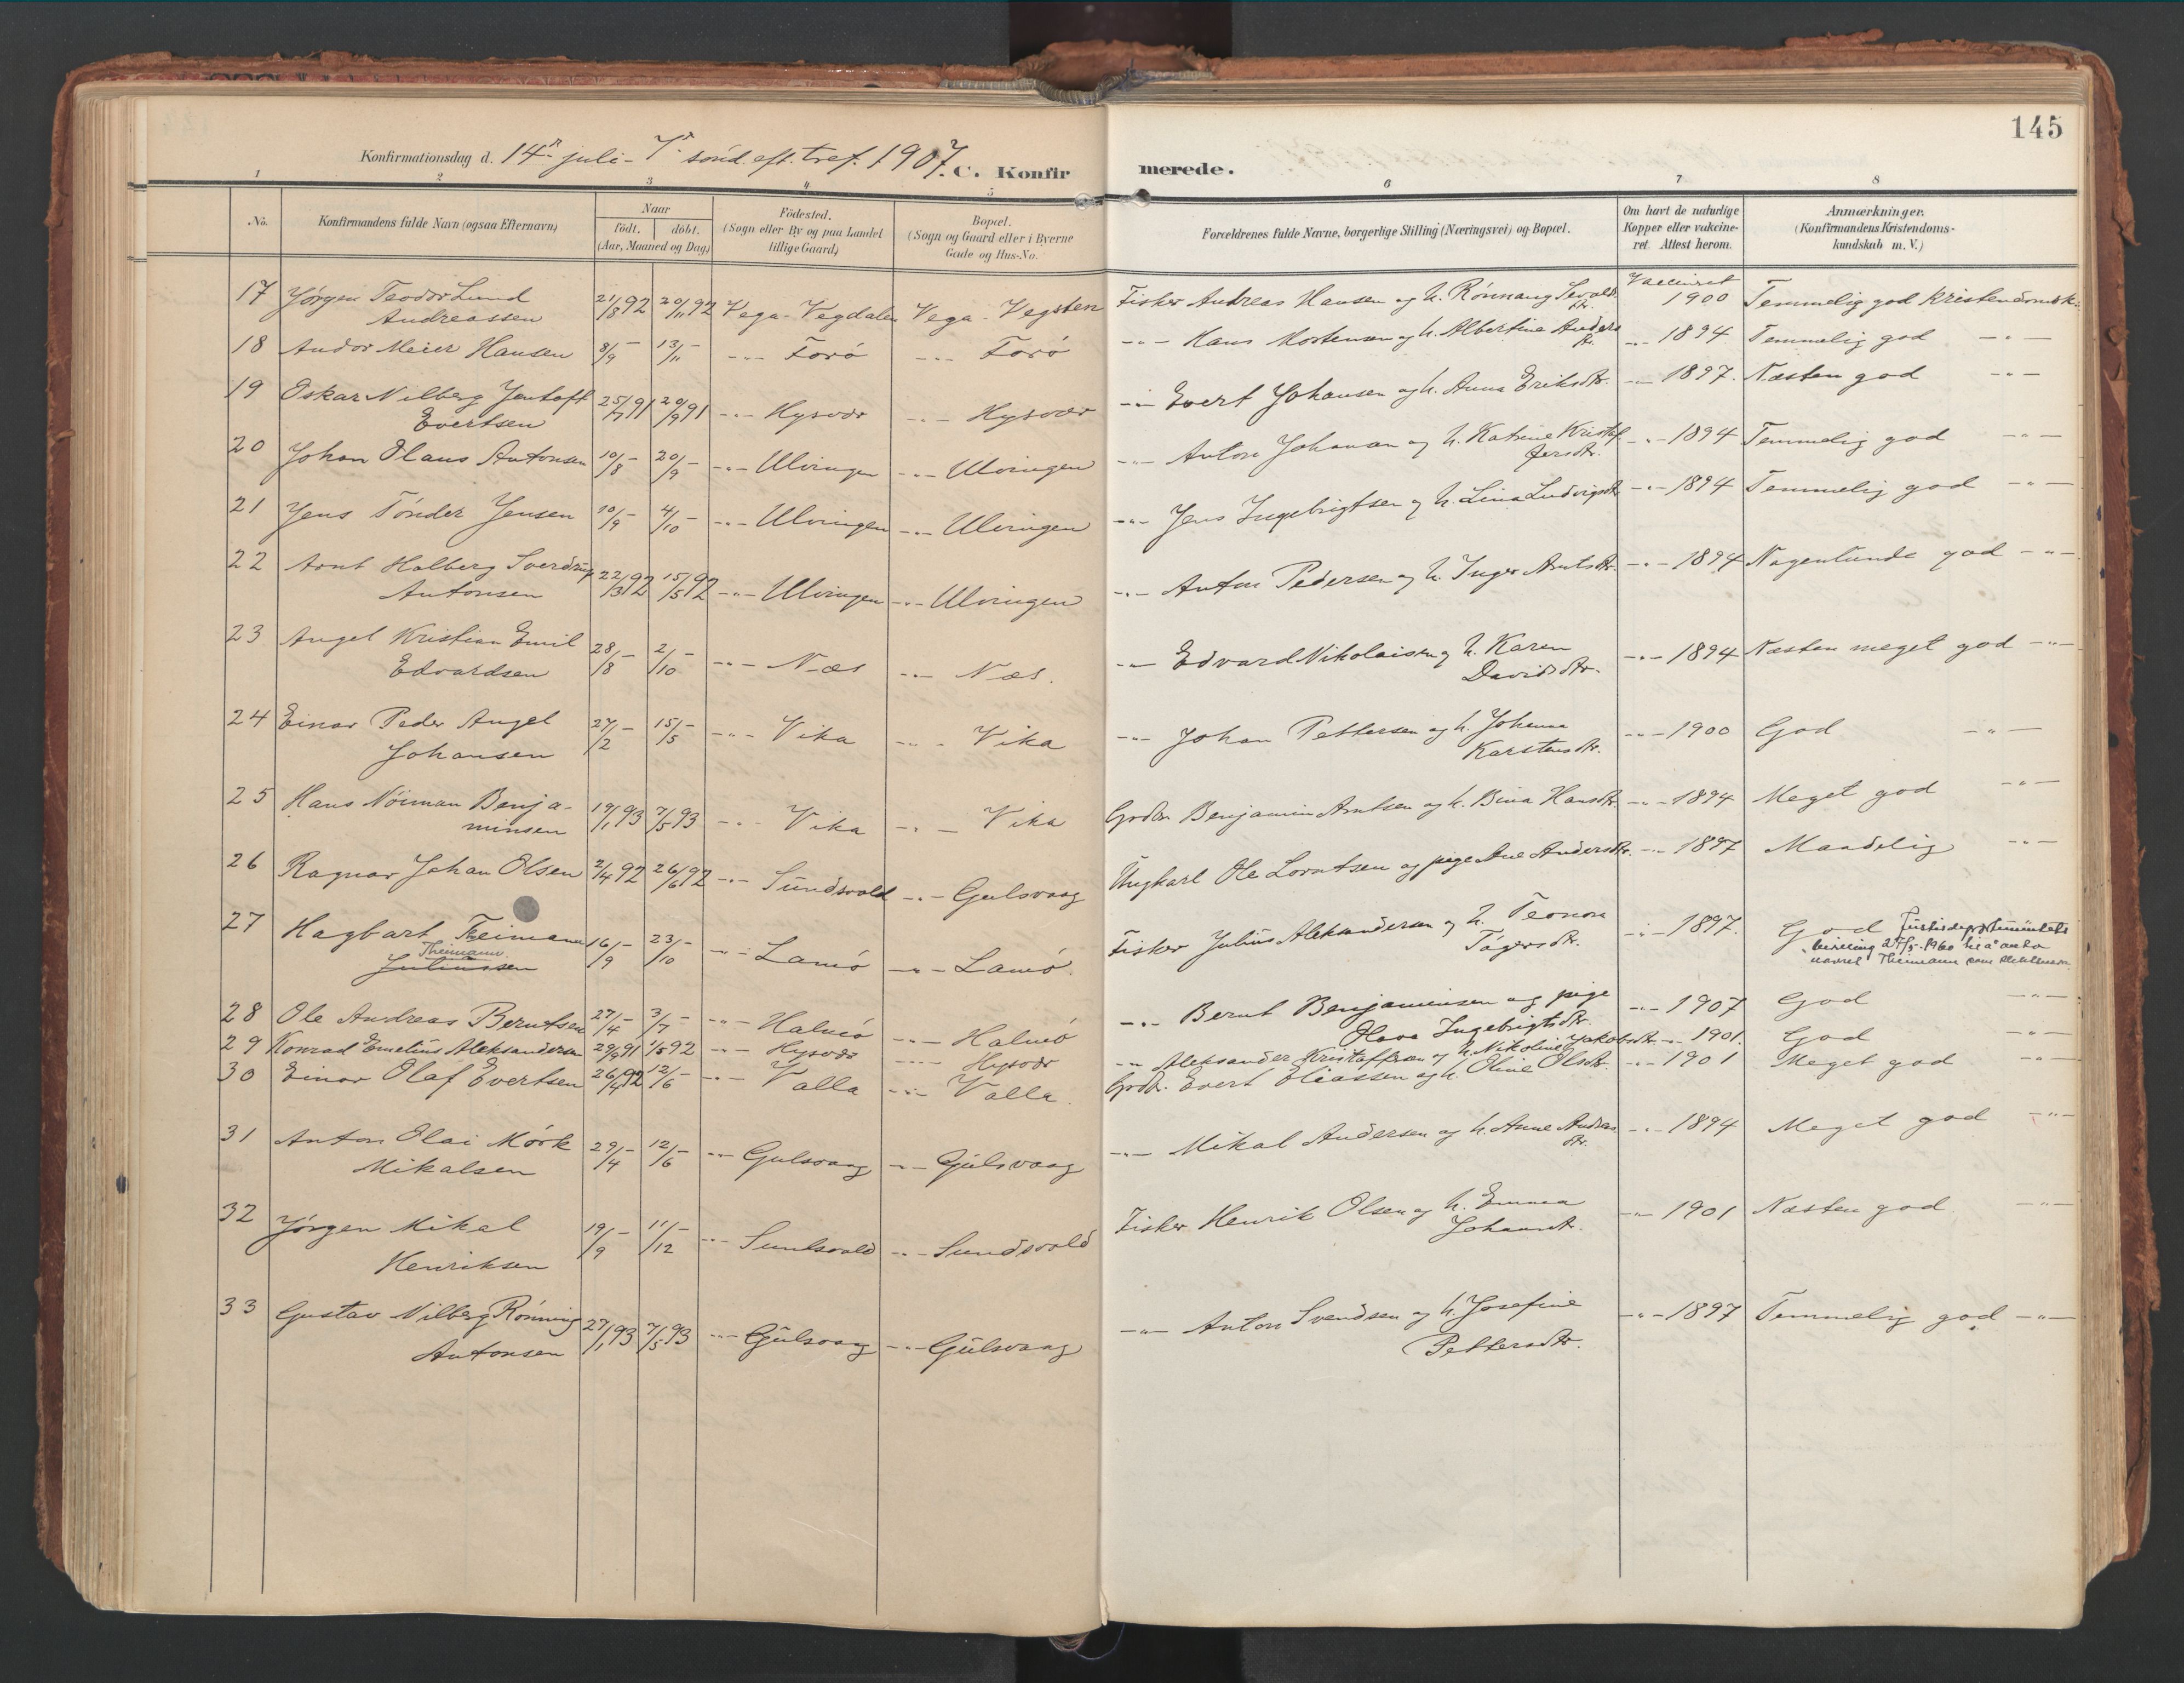 145
Konfirmationsdag d. 14de juli - 7de sønd. eft. tref. 1907. C. Konfirmerede.
1 2 3 4 5 6 7 8
No. Konfirmandens fulde Navn (ogsaa Efternavn) Naar født. døbt. (Aar, Maaned og Dag) Fødested. (Sogn eller By og paa Landet tillige Gaard) Bopæl. (Sogn og Gaard eller i Byerne Gade og Hus-No. Forældrenes fulde Navne, borgerlige Stilling (Næringsvei) og Bopæl. Om havt de naturlige Kopper eller vakcineret. Attest herom. Anmærkninger. (Konfirmandens Kristendomskundskab m. V.)
17 Jørgen Teodor Lund Andreassen 21/8 92 20/11 92 Vega - Vegdalen Vega - Vegsten Fisker Andreas Hansen og h. Rønnaug Sevalds dtr. Vaccineret 1900 Temmelig god kristendomsk.
18 Andor Meier Hansen 8/9 - 13/11 - -"- Forø -"- Forø -"- Hans Mortensen og h. Albertine Anders dtr. -"- 1894 Temmelig god -"-
19 Oskar Vilberg Jentoft Evertsen 25/7 91 20/9 91 -"- Hysvær -"- Hysvær -"- Evert Johansen og h. Anna Eriksdtr. -"- 1897. Næsten god -"-
20 Johan Olaus Antonsen 10/8 - 20/9 - -"- Ulvingen -"- Ulvingen -"- Anton Johansen og h. Katrine Kristoffersdtr. -"- 1894 Temmelig god -"-
21 Jens Tønder Jensen 10/9 - 4/10 - -"- Ulvingen -"- Ulvingen -"- Jens Ingebrigtsen og h. Lina Ludvigsdtr. -"- 1894 Temmelig god -"-
22 Arnt Holberg Sverdrup Antonsen 22/3 92 15/5 92 -"- Ulvingen -"- Ulvingen -"- Anton Pedersen og h. Inger Arntsdtr. -"- 1894 Nogenlunde god -"-
23 Angel Kristian Emil Edvardsen 28/8 - 2/10 - -"- Næs -"- Næs. -"- Edvard Nikolaisen og h. Karen Davidsdtr. -"- 1894 Næsten meget god -"-
24 Einar Peder Angel Johansen 27/2 - 15/5 - -"- Vika -"- Vika -"- Johan Pettersen og h. Johanna Karstensdtr. -"- 1900 God -"-
25 Hans Nøiman Benjaminsen 19/1 93 7/5 93 -"- Vika -"- Vika Grdbr. Benjamin Arntsen og h. Bina Hansdtr. -"- 1894 Meget god -"-
26 Ragnar Johan Olsen 2/4 92 26/6 92 -"- Sundsvold -"- Gulsvaag Ungkarl Ole Lorntsen og pige Ane Andersdtr. -"- 1897 Maadelig -"-
27 Hagbart Theimann Theimann Juliussen 16/9 - 23/10 - -"- Lamø -"- Lamø. Fisker Julius Aleksandersen og h. Leonora Tøgersdtr. -"- 1897. God Justisdepartementets bevilling 27/5-1960 til å anta navnet Theimann som slektsnavn.
28 Ole Andreas Berntsen 27/4 - 3/7 - -"- Halmø -"- Halmø -"- Bernt Benjaminsen og pige Olava Ingebrigtsdtr. -"- 1907 God -"-
29 Konrad Emelius Aleksandersen 29/9 91 1/5 92 -"- Hysvær -"- Hysvær -"- Aleksander Kristoffersen og h. Nikoline Jakobsdtr. -"- 1901. God -"-
30 Einar Olaf Evertsen 26/4 92 12/6 - -"- Valla -"- Valla. Grdbr. Evert Eliassen og h. Oline Olsdtr. -"- 1901 Meget god -"-
31 Anton Olai Mørk Mikalsen 29/4 - 12/6 - -"- Gulsvaag -"- Gulsvaag -"- Mikal Andersen og h. Anne Andreas dtr. -"- 1894 Meget god -"-
32 Jørgen Mikal Henriksen 19/9 - 11/12 - -"- Sundsvold -"- Sundsvold Fisker Henrik Olsen og h. Emma Johansdtr. -"- 1901 Næsten god -"-
33 Gustav Vilberg Rønning Antonsen 27/1 93 7/5 93 -"- Gulsvaag -"- Gulsvaag -"- Anton Svendsen og h. Josefine Pettersdtr. -"- 1897 Temmelig god -"-